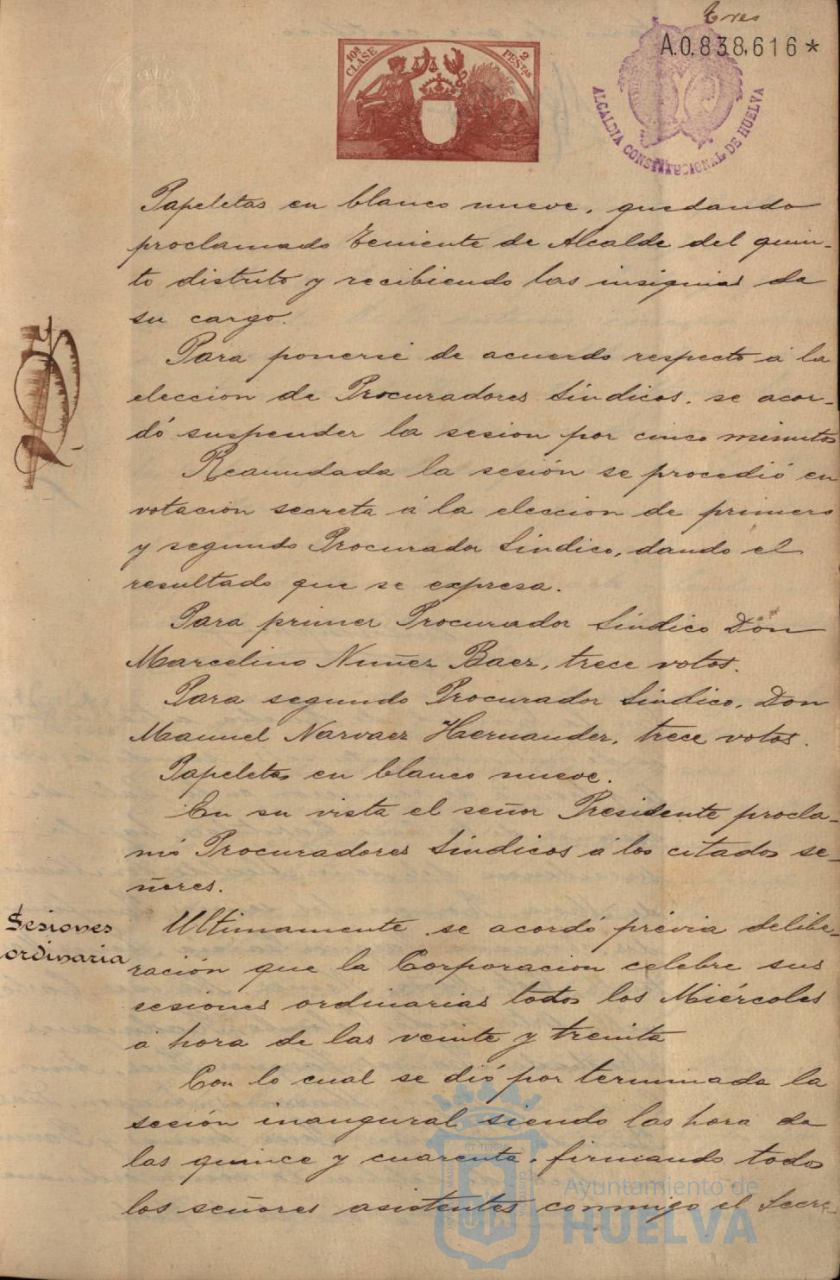 Tres
A.0.838,616*
10ª CLASE
2 PESETAS
ALCALDIA CONSTITUCIONAL DE HUELVA
Papeletas en blanco nueve, quedando
proclamado Teniente de Alcalde del quin-
to distrito y recibiendo las insignias de
su cargo.
Para ponerse de acuerdo respecto á la
eleccion de Procuradores Sindicos, se acor-
dó suspender la sesion por cinco minutos
Reanudada la sesión se procedió en
votación secreta á la eleccion de primero
y segundo Procurador Sindico, dando el
resultado que se expresa.
Para primer Procurador Sindico Don
Marcelino Nuñez Baez, trece votos.
Para segundo Procurador Sindico, Don
Manuel Narvaez Hernandez, trece votos.
Papeletas en blanco nueve.
En su vista el señor Presidente procla-
mó Procuradores Sindicos á los citados se-
ñores.
Sesiones
ordinaria
Ultimamente se acordó prévia delibe-
ración que la Corporacion celebre sus
sesiones ordinarias todos los Miércoles
á hora de las veinte y treinta
Con lo cual se dió por terminada la
sesión inaugural siendo las hora de
las quince y cuarenta, firmando todos
los señores asistentes conmigo el Secre-
Ayuntamiento de
HUELVA